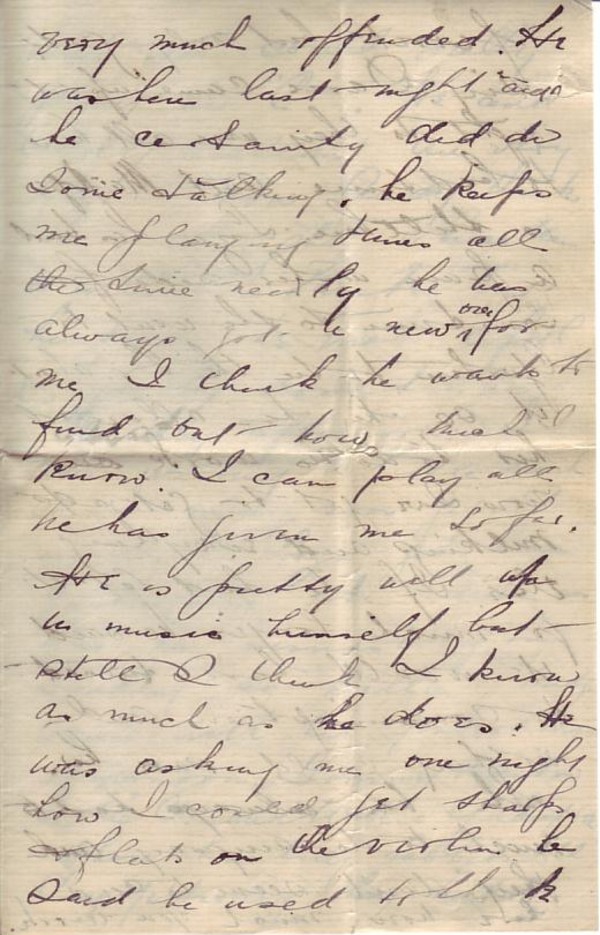 very much offended. He
was here last night and
he certainty did do
some talking. he keeps
me playing tunes all
the time nearly he has
always got a new one for
me I think he wants to
find out how much I
know. I can play all
he has given me so far.
He is pretty well up
in music himself but
still I think I know
as much as he does. He
was asking me one night
how I could get sharps
& flats on the violin he
said he used to think